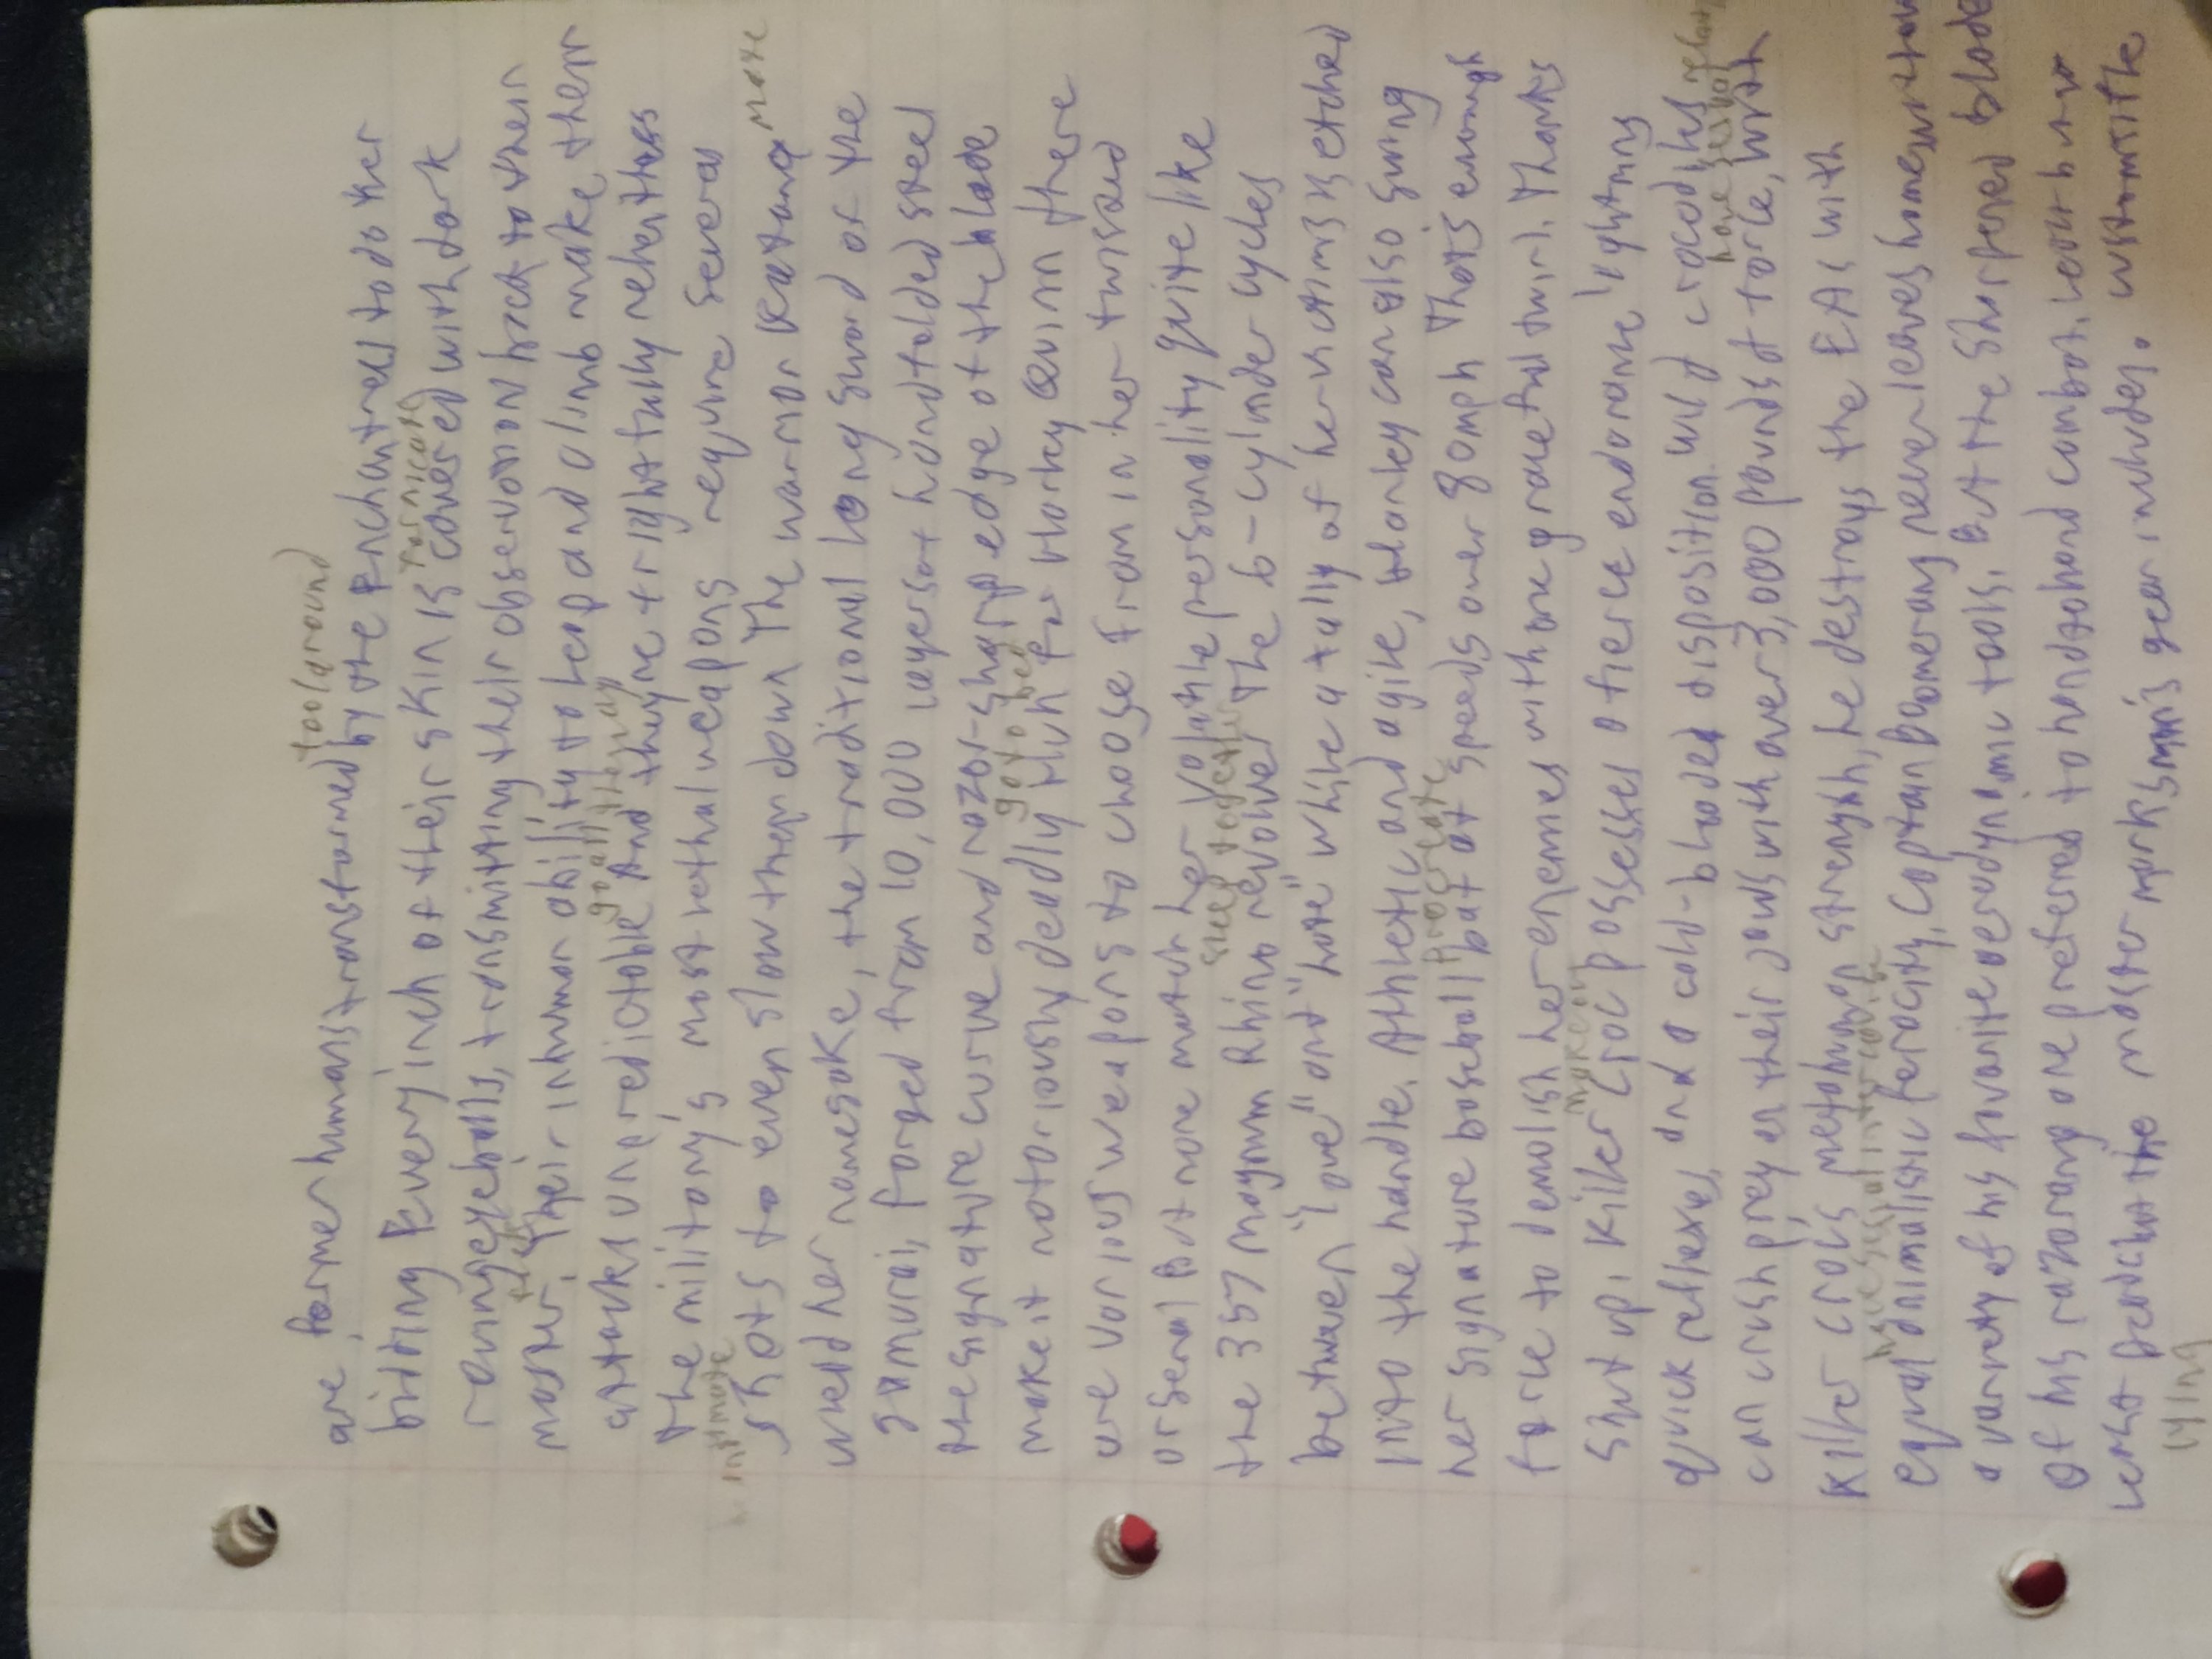 fool around
are former humans transformed by the Enchantress to do her
fornicate
bidding Every inch of their skin is covered with dark
roving eyeballs, transmitting their observation back to their
master. Their inhuman ability to leap and climb make their
go all the way
attacks unpredictable And they're frightfully relentless
the military's most lethal weapons require several
be intimate
shots to even slow them down The warrior Katana more
wield her namesake, the traditional long sword of the
samurai, forged from 10,000 layers of handfolded steel
the signature curve and razor-sharp edge of the blade
go to bed
make it notoriously deadly Much for Harley Quinn there
are various weapons to choose from in her twisted
arsenal But none match her volatile personality quite like
sleep together
the 357 magnum Rhino revolver The 6-cylinder cycles
between "love" and "hate" while a tally of her victims is etched
into the handle. Athletic and agile, Harley can also swing
procreate
her signature baseball bat at speeds over 80mph That's enough
force to demolish her enemies with one graceful twirl. Thanks
make out
shut up. Killer Croc possesses a fierce endorance lightning
quick reflexes and a cold-blooded disposition wild crocodiles
have sexual relations
can crush prey in their jaws with over 3,000 pounds of force, with
Killer Croc's metahuman strength, he destroys the EAs with
have sexual intercourse
equal animalistic ferocity, Captain Boomerang never leaves home without
a variety of his favorite aerodynamic tools. But the sharpened blade
Of his razorang are preferred to handtohand combat.
the master marksman's gear includes. wristmist the
lying